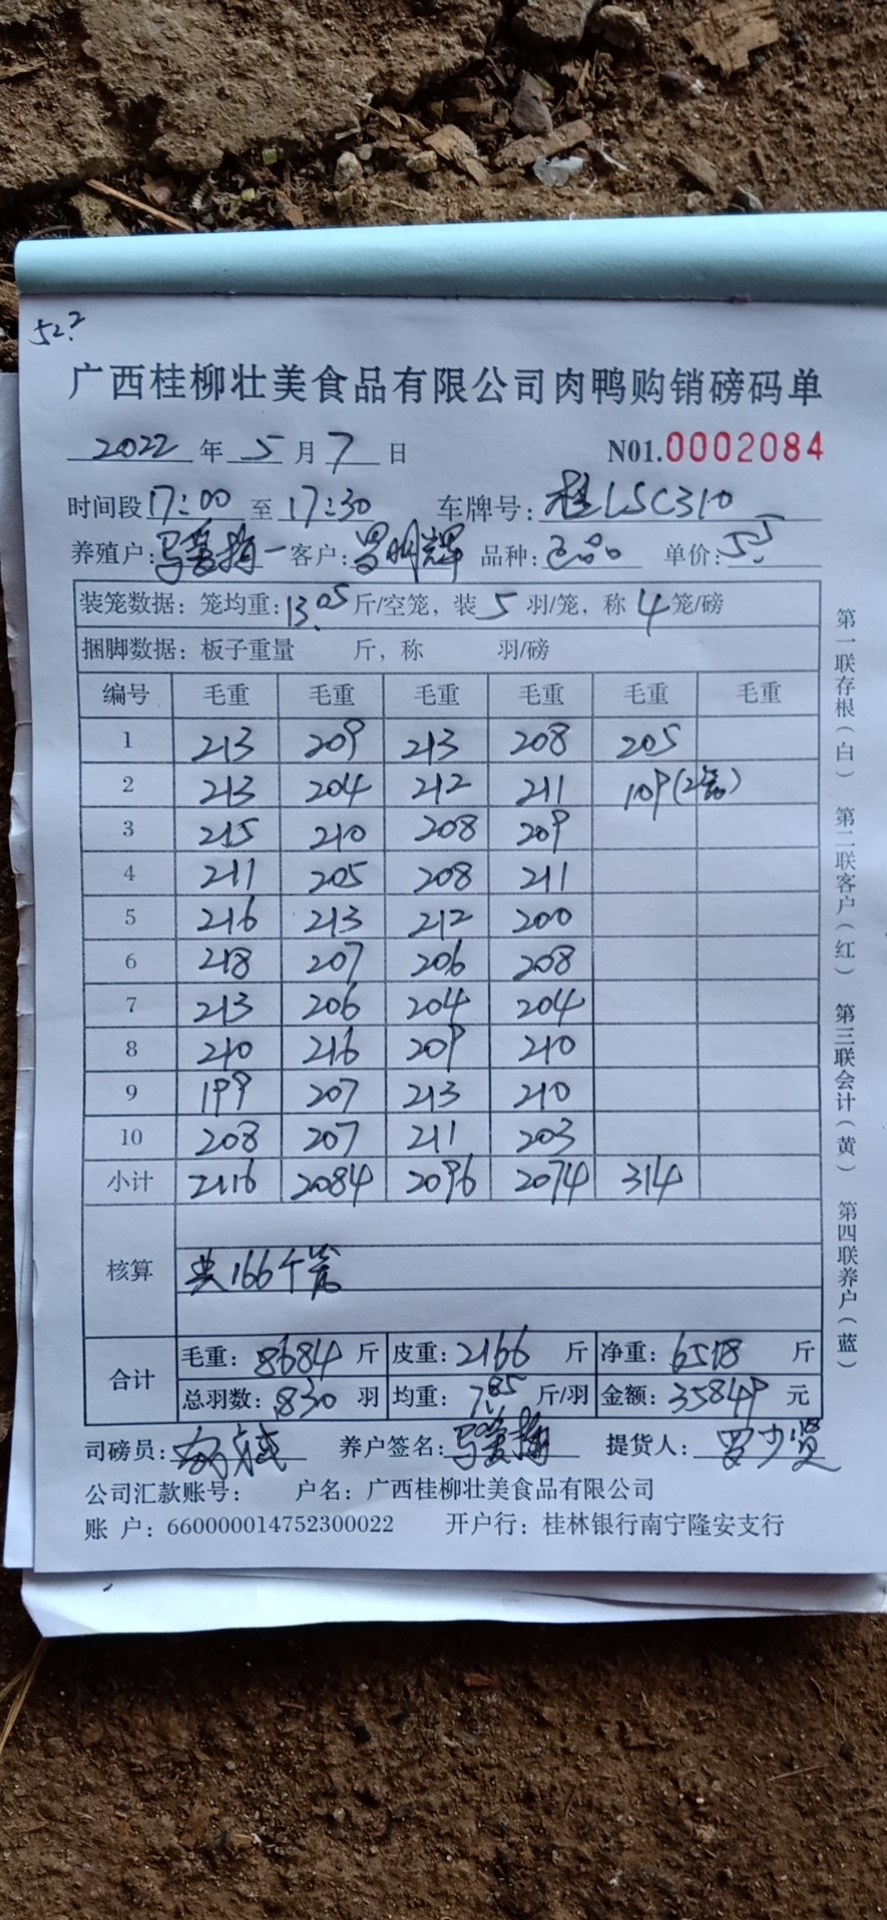 52?
广西桂柳壮美食品有限公司肉鸭购销磅码单
2022年5月7日 N01.0002084
时间段17:00至17:30 车牌号:桂LSC310
养殖户:马爱梅一 客户:罗明辉 品种: 单价:5.5
装笼数据:笼均重:13.05斤/空笼,装5羽/笼,称4笼/磅
捆脚数据:板子重量 斤,称 羽/磅
编号 毛重 毛重 毛重 毛重 毛重 毛重
1 213 209 213 208 205
2 213 204 212 211 109(2笼)
3 215 210 208 209
4 211 205 208 211
5 216 213 212 200
6 218 207 206 208
7 213 206 204 204
8 210 216 209 210
9 199 207 213 210
10 208 207 211 203
小计 2116 2084 2096 2074 314
核算 共166个笼
合计 毛重:8684斤 皮重:2166斤 净重:6518斤
总羽数:830羽 均重:7.85斤/羽 金额:35849元
司磅员: 养户签名:马爱梅 提货人:罗少贤
公司汇款账号: 户名:广西桂柳壮美食品有限公司
账 户:660000014752300022 开户行:桂林银行南宁隆安支行
第一联存根(白) 第二联客户(红) 第三联会计(黄) 第四联养户(蓝)